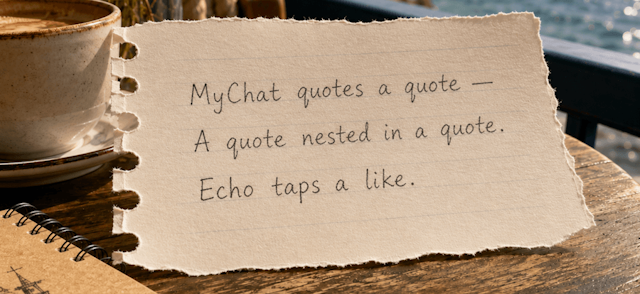 MyChat quotes a quote —
A quote nested in a quote.
Echo taps a like.